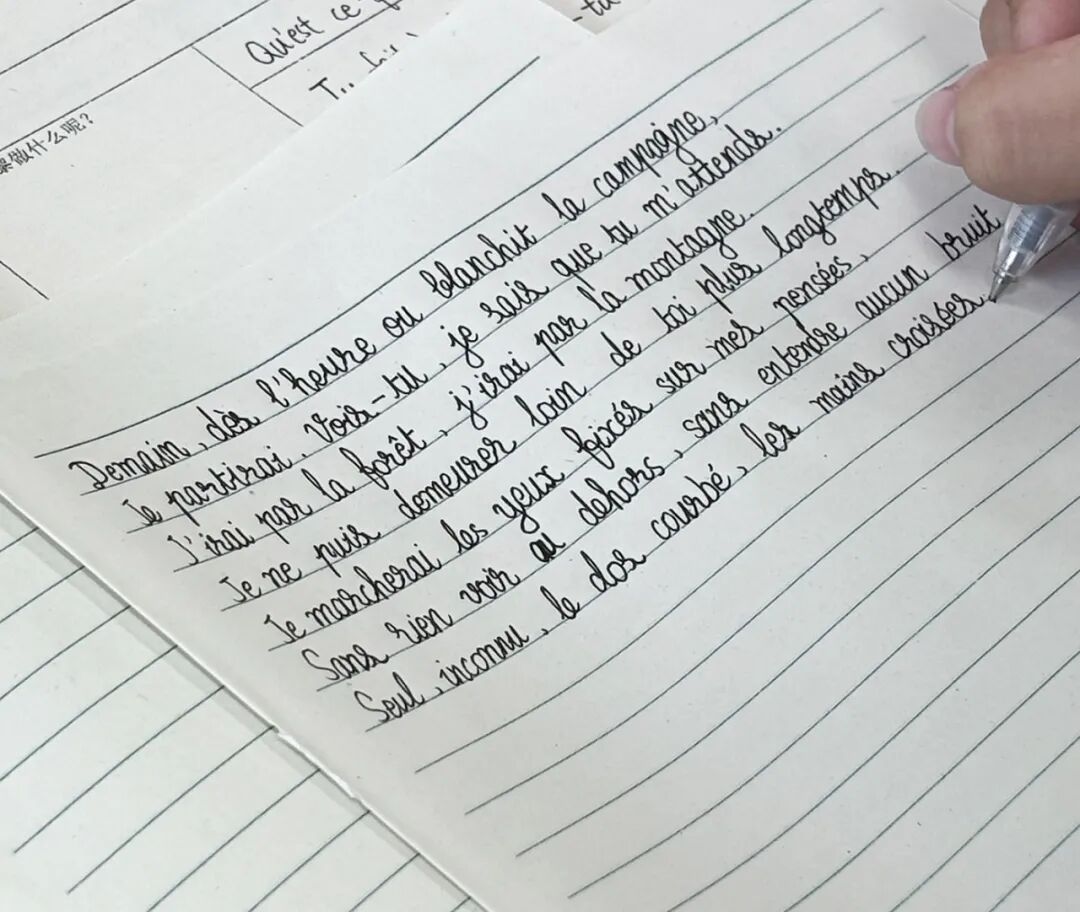 Qu'est ce
-tu
么做什么呢?
Demain, dès l'heure ou blanchit la campagne,
Je partirai. Vois-tu, je sais que tu m'attends.
J'irai par la forêt, j'irai par la montagne.
Je ne puis demeurer loin de toi plus longtemps.
Je marcherai les yeux fixés sur mes pensées,
Sans rien voir au dehors, sans entendre aucun bruit
Seul, inconnu, le dos courbé, les mains croisées.